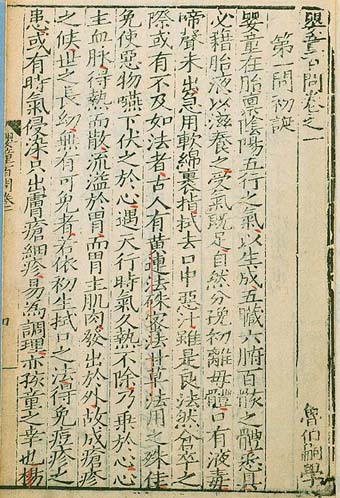 嬰童百問卷之一
魯伯嗣學
第一問初誕
嬰童在胎禀陰陽五行之氣以生成五臟六腑百骸之體悉具
必藉胎液以滋養之受氣既足自然分娩初離母體口有液毒
啼聲未出急用軟綿裹指拭去口中惡汁雖是良法然倉卒之
際或有不及如法者古人有黄連法硃蜜法甘草法用之殊佳
免使惡物嚥下伏之於心遇天行時氣久熱不除乃乗於心心
主血脉得熱而散流溢於胃而胃主肌肉發出於外故成瘡疹
之候世之長幼無有可免者若依初生拭口之法得免痘疹之
患或有時氣侵染只出膚瘡細疹易為調理亦孩童之幸也楊
嬰童百問卷一